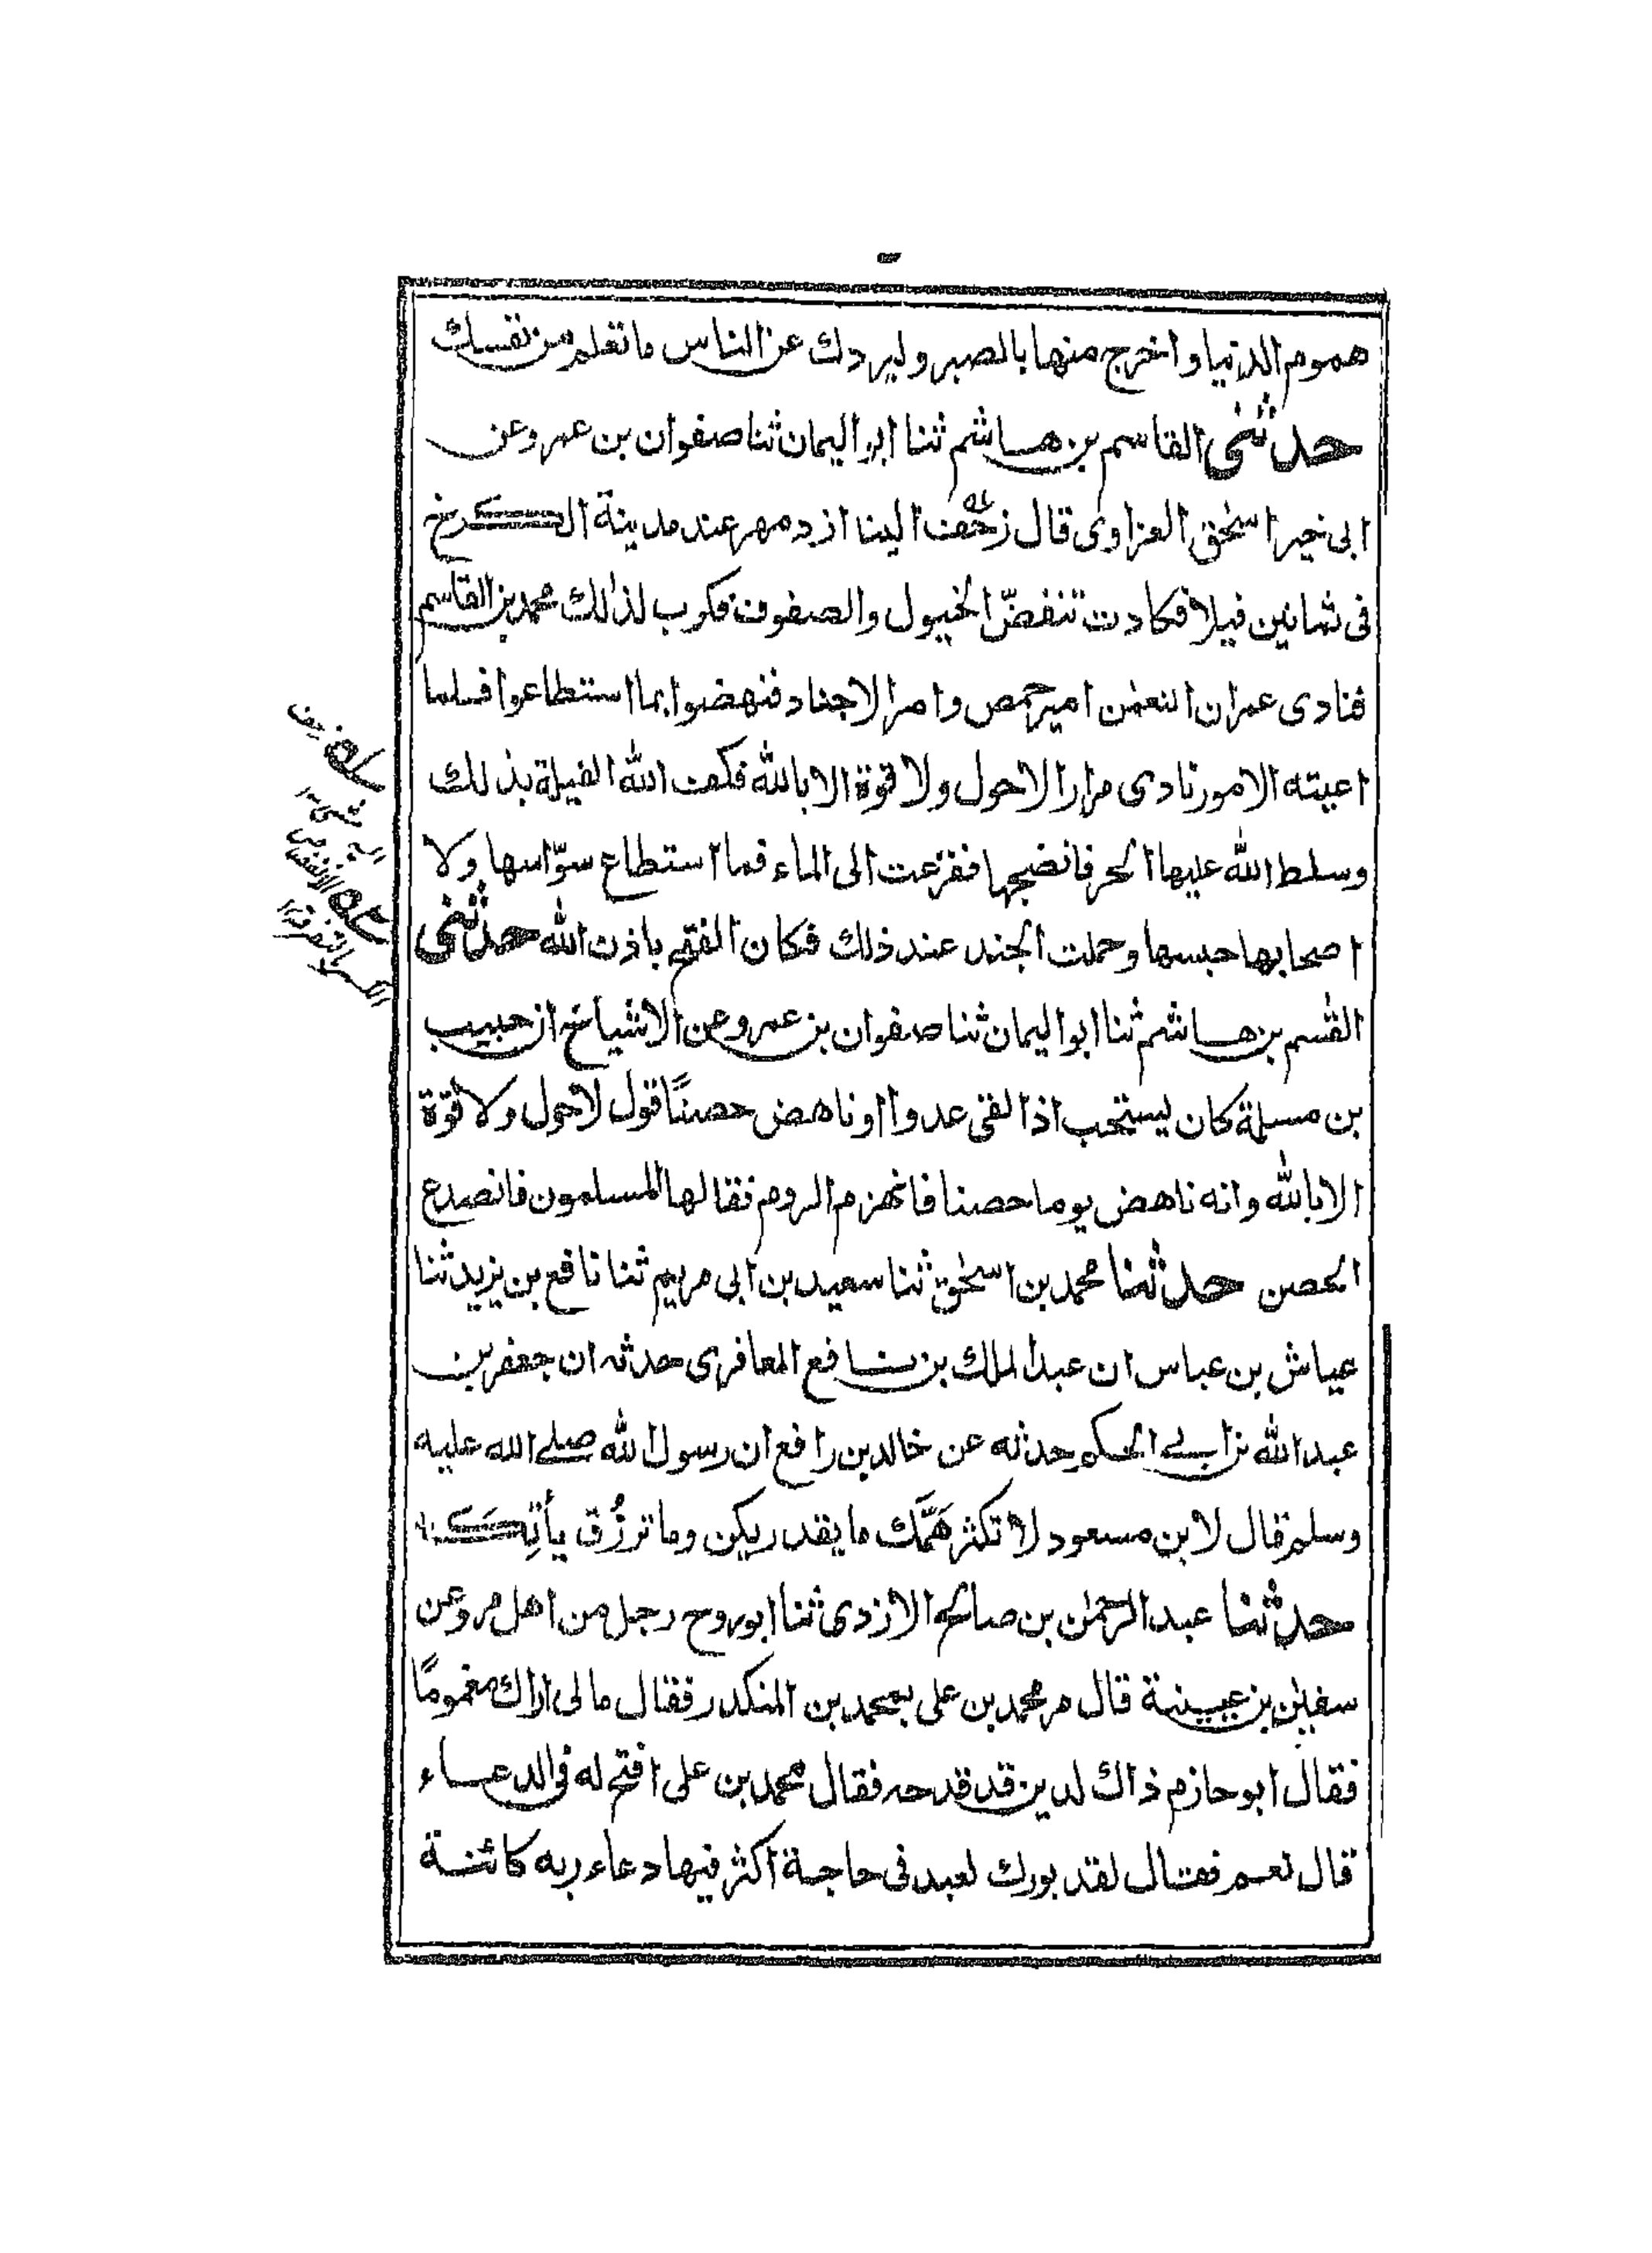 هموم الدنيا واخرج منها بالصبر وليردك عن الناس ما تعلم من نفسك
حدثنى القاسم بن هاشم ثنا ابو اليمان ثنا صفوان بن عمرو عن
ابى خير اسحٰق العزاوى قال زحفت الينا ازدمهر عند مدينة الكرخ
فى ثمانين فيلا فكادت تنفضّ الخيول والصفوف فكرب لذٰلك محمد بن القاسم
فنادى عمران النعمٰن امير حمص وامرا الاجناد فنهضوا بما استطاعوا فلما
اعيته الامور نادى مرارا لاحول ولا قوة الا بالله فكفت الله الفيلة بذلك
وسلط الله عليها الحر فانضجها ففزعت الى الماء فما استطاع سوّاسها ولا
اصحابها حبسها وحملت الجند عند ذلك فكان الفتح باذن الله حدثنى
القٰسم بن هاشم ثنا ابو اليمان ثنا صفوان بن عمرو عن الاشياخ ان حبيب
بن مسلمة كان يستحب اذا لقى عدوا او ناهض حصنًا قول لاحول ولا قوّة
الا بالله وانه ناهض يوما حصنا فانهزم الروم فقالها المسلمون فانصدع
الحصن حدثنا محمد بن اسحٰق ثنا سعيد بن ابى مريم ثنا نافع بن يزيد ثنا
عياش بن عباس ان عبد الملك بن نافع المعافرى حدثه ان جعفر بن
عبد الله بن ابى الحكم حدثه عن خالد بن رافع ان رسول الله صلے الله عليه
وسلم قال لابن مسعود لا تكثر هَمَّك ما يقدر يكن وما ترزُق يأتِكَ
حدثنا عبد الرحمٰن بن صالح الازدى ثنا ابو روح رجل من اهل مرو عن
سفيٰن بن عيينة قال مر محمد بن على بمحمد بن المنكدر فقال مالى اراك مغمومًا
فقال ابو حازم ذاك لدين قد قدحه فقال محمد بن على افتح له فى الدعاء
قال نعم فقال لقد بورك لعبد فى حاجة اكثر فيها دعاء ربه كائنة